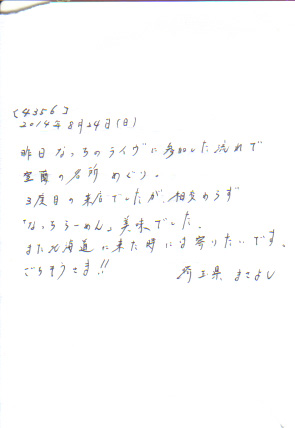 [4356]
2014年8月24日(日)
昨日なっちのライヴに参加した流れで
室蘭の名所めぐり。
3度目の来店でしたが、相変わらず
「なっちらーめん」美味でした。
また北海道に来た時には寄りたいです。
ごちそうさま!!
埼玉県 まさよし